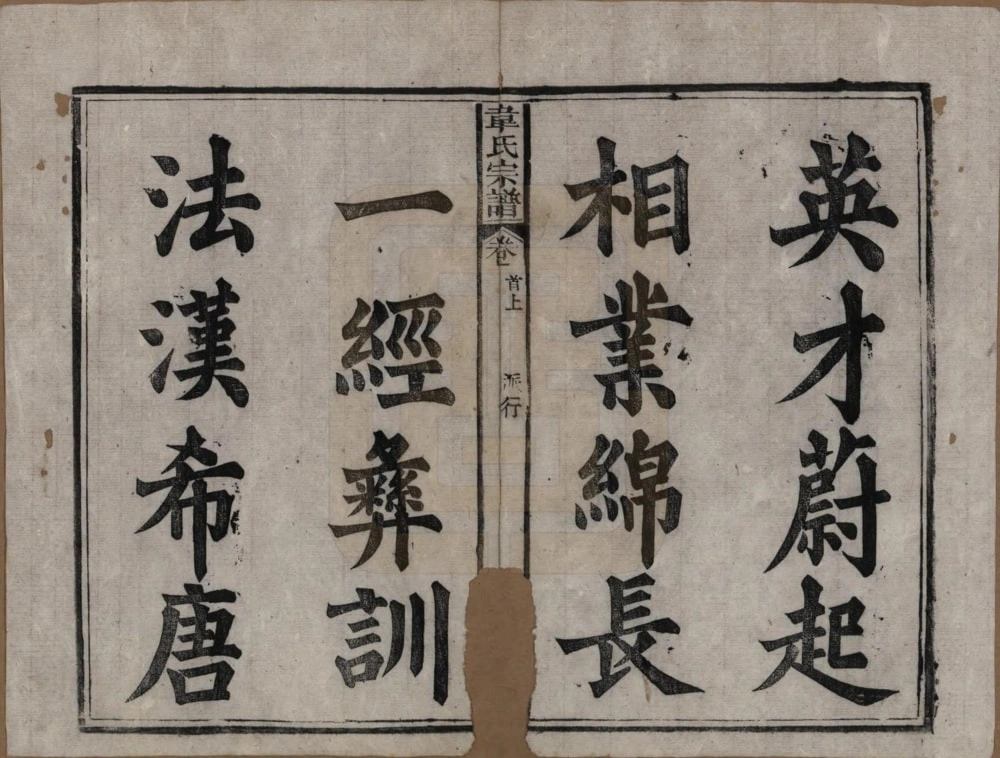 英才蔚起
相業綿長
韋氏宗譜 卷 首上 派行
一經彝訓
法漢希唐